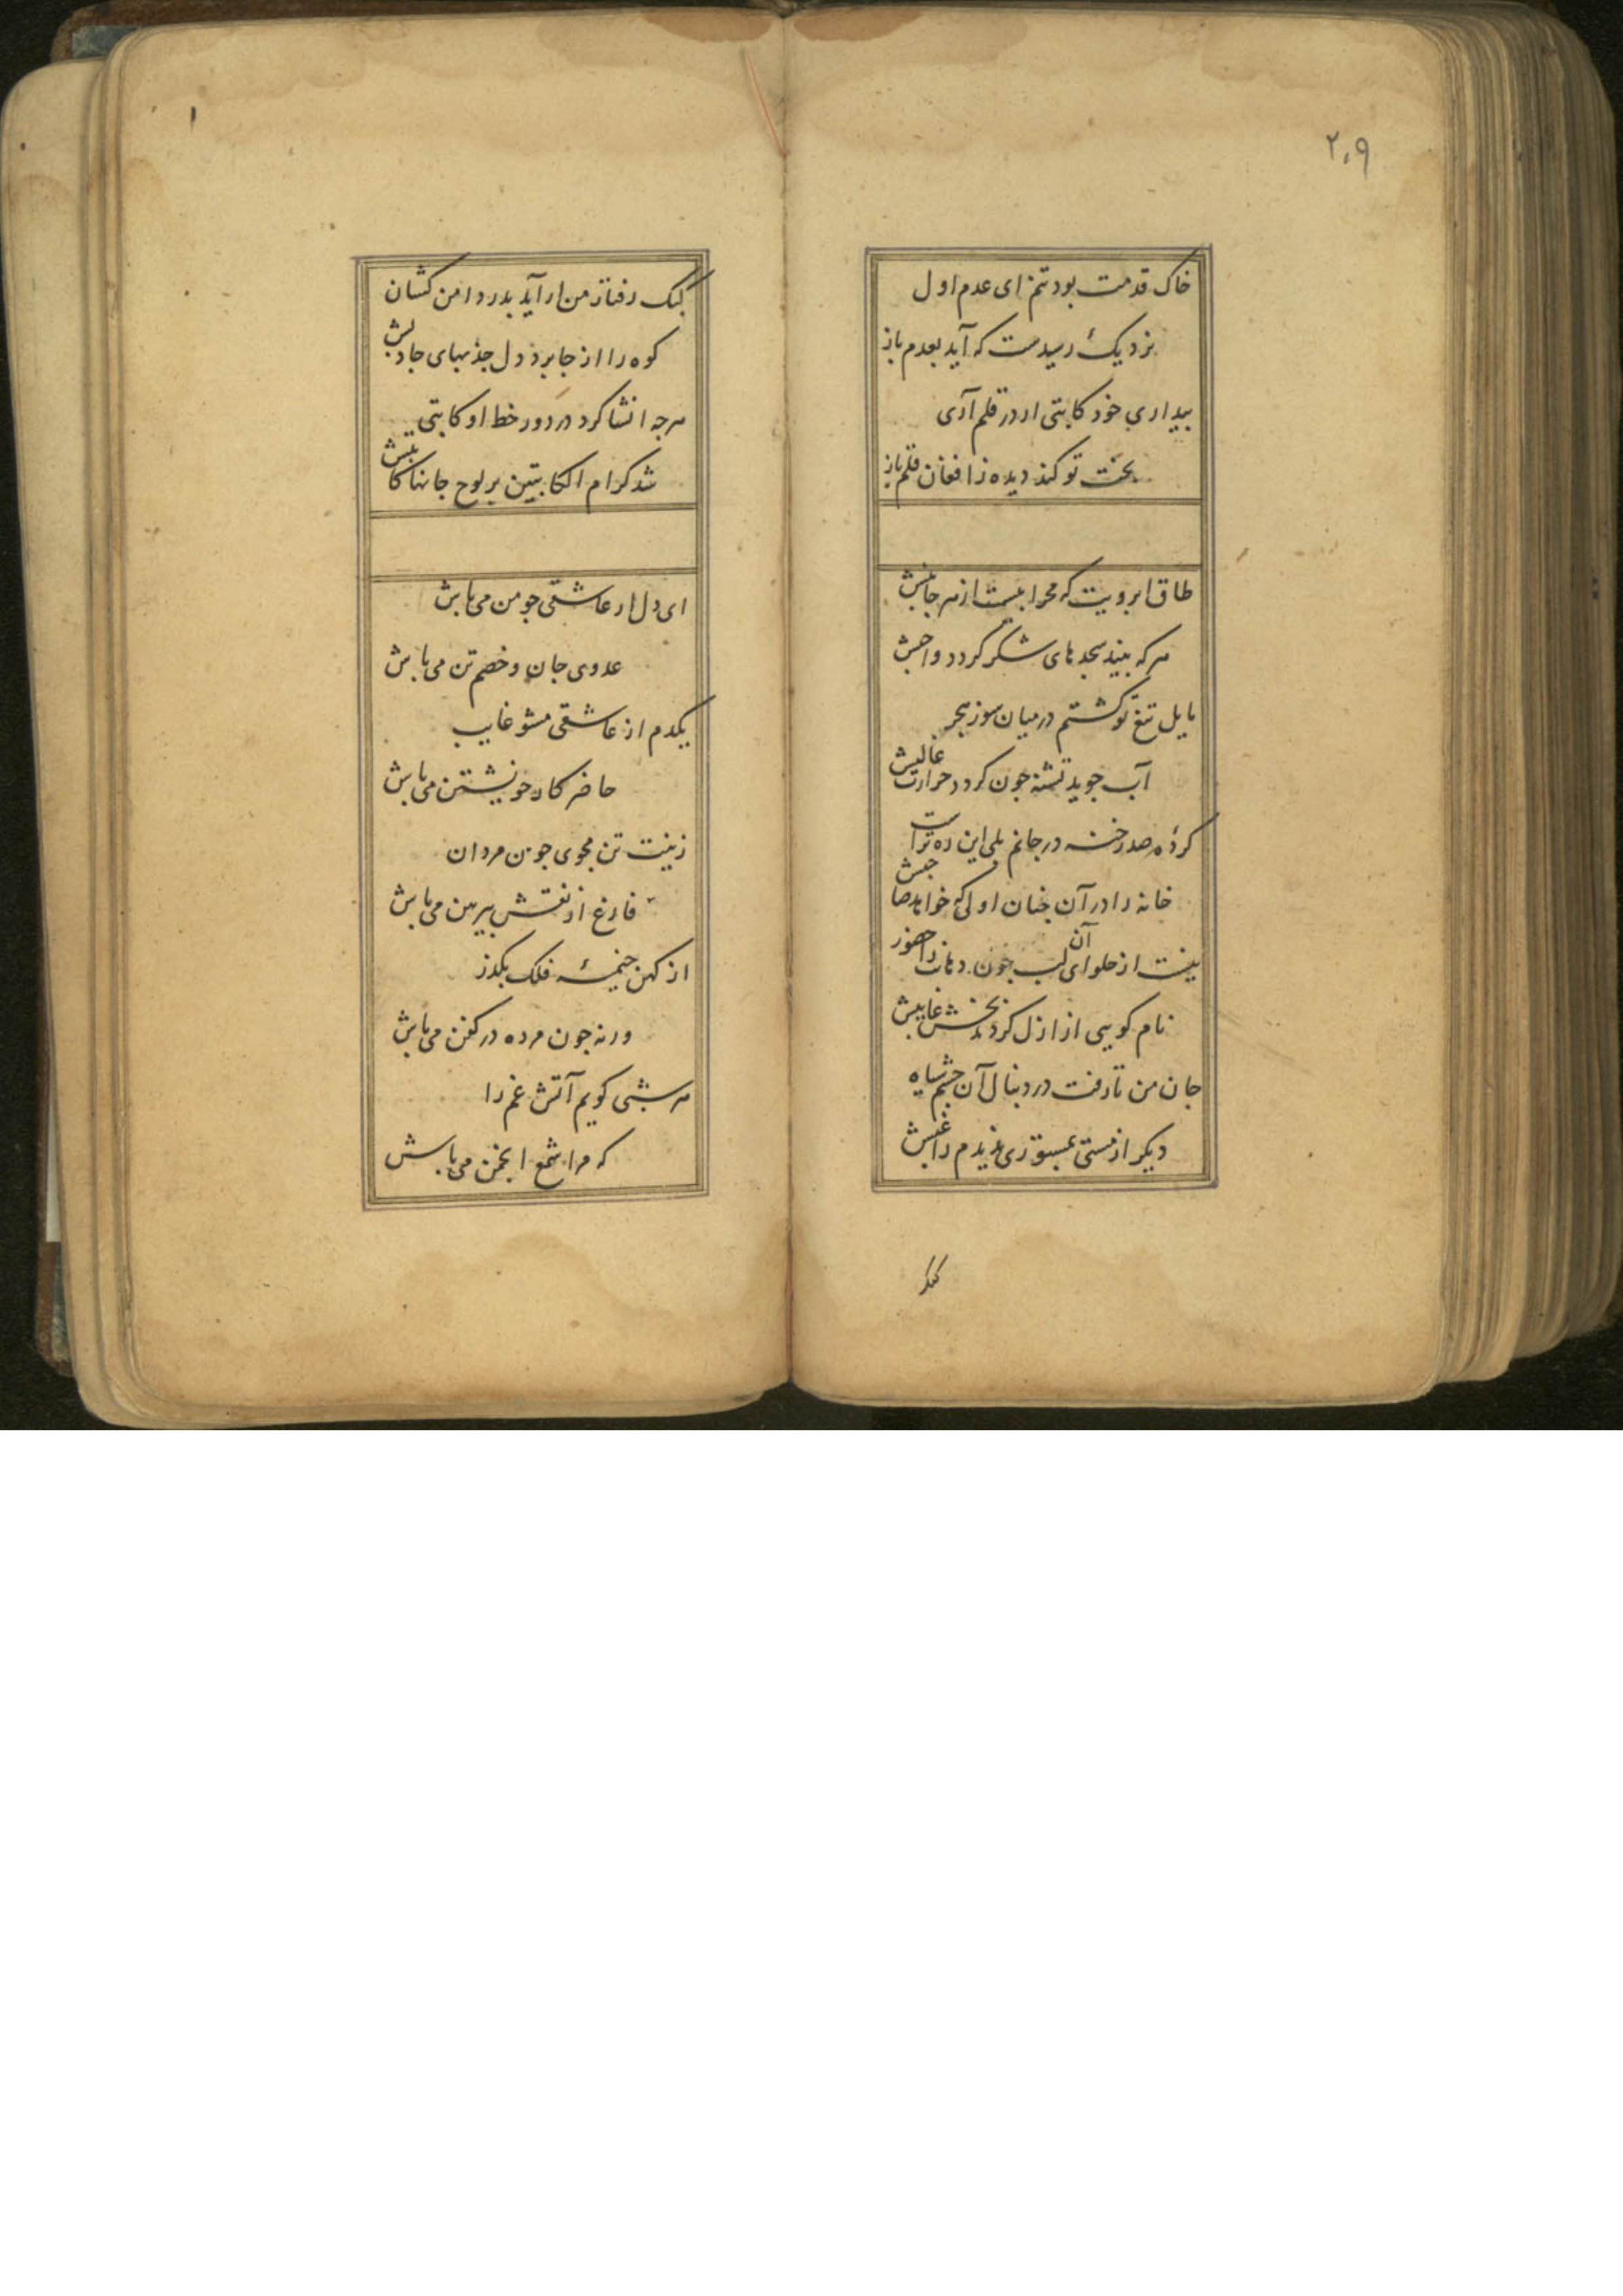 ۲۰۹
خاک قدمت بود تنم ای عدم اول
نزدیک رسیدست که آید بعدم باز
بیداری خود کاتبی ار در قلم آری
بخت تو کند دیده ز افغان قلم باز
طاق ابرویت که محرابیست از هر جانبش
هرکه بیند سجدهای شکر کردد واجبش
مایل تیغ تو کشتم در میان سوز هجر
آب جوید تشنه جون کردد حرارت غالبش
کردهٔ صد رخنه در جانم بلی این ره تراست
خانه را در آن جنان اولی که خواهد صاحبش
نیست از حلوای آن لب جون دهانت را حضور
نام کویی از ازل کردند بخش غایبش
جان من تا رفت در دنبال آن جشم سیاه
دیکر از مستی ندیدم راغبش
کبک
۱
کبک رفتار من ار آید بدر دامن کشان
کوه را از جا برد دل جذبهای جاذبش
هرجه انشا کرد در دور خط او کاتبی
شد کرام الکاتبین بر لوح جانها کاتبش
ای دل ار عاشقی جو من می باش
عدوی جان و خصم تن می باش
یکدم از عاشقی مشو غایب
حاضر کار خویشتن می باش
زینت تن مجوی جون مردان
فارغ از نقش پیرهن می باش
از کهن خیمهٔ فلک بکذر
ورنه جون مرده در کفن می باش
هر شبی کویم آتش غم را
که مرا شمع انجمن می باش